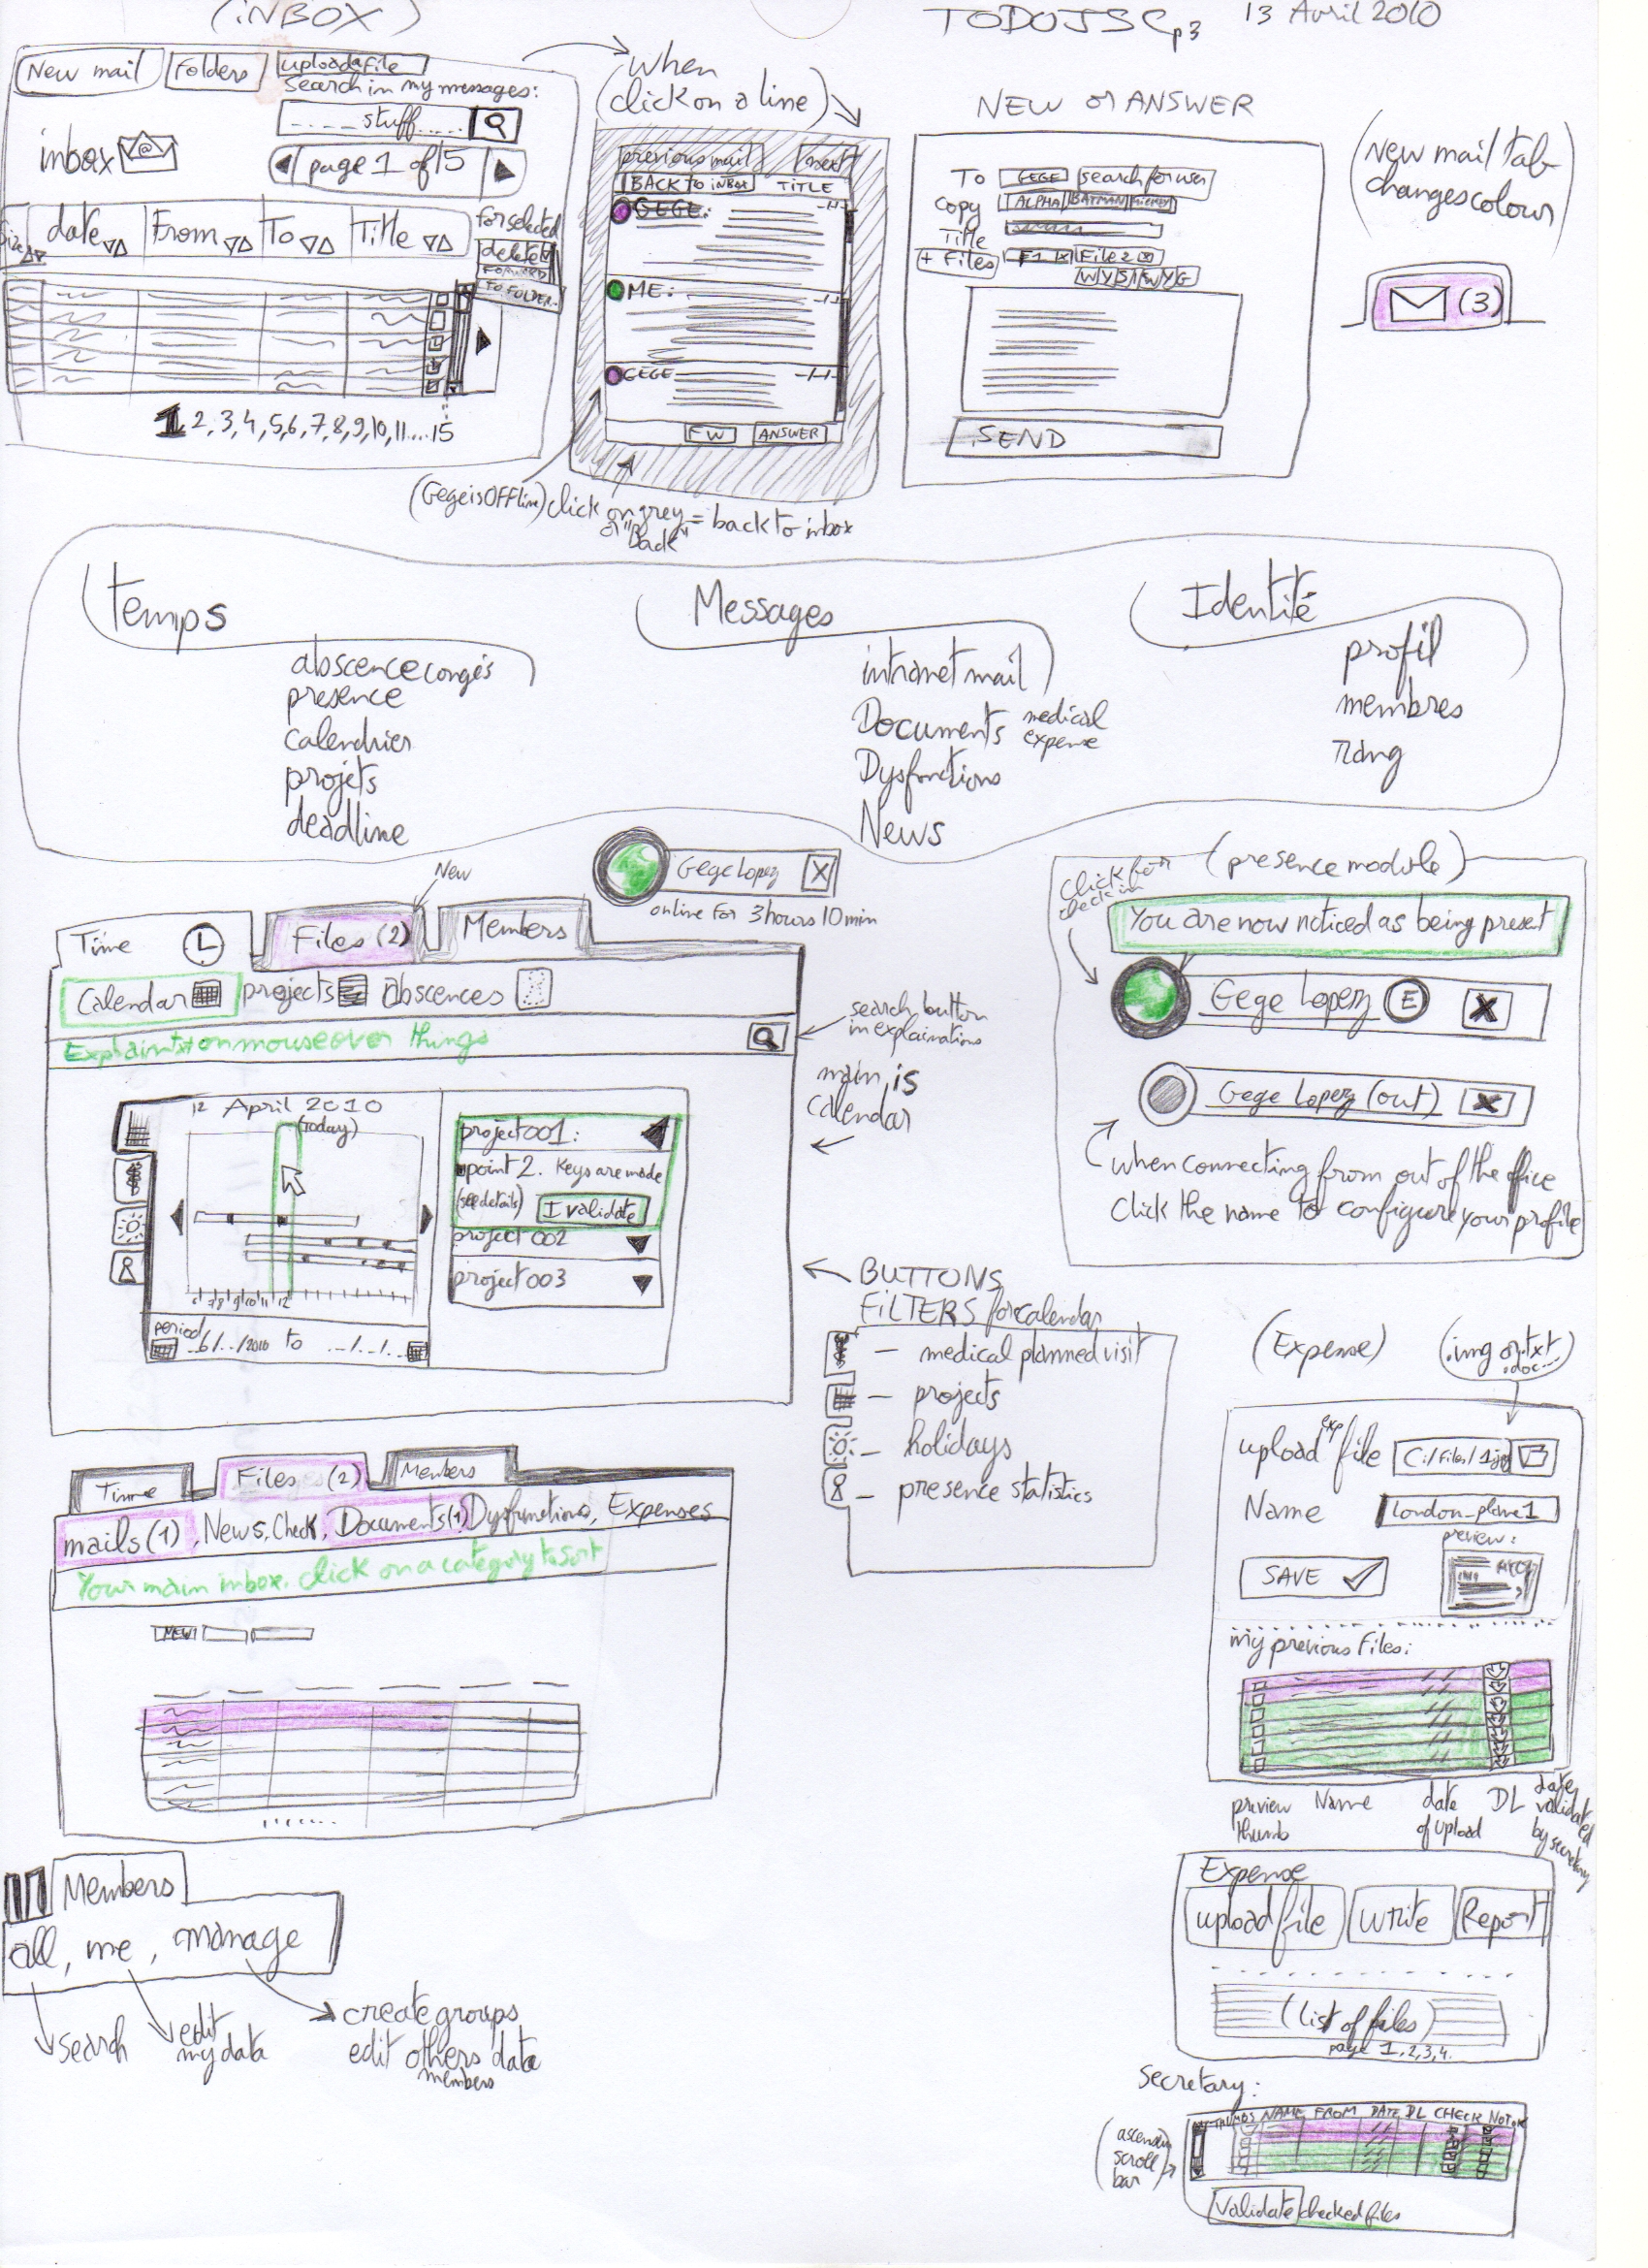 (iNBOX)
TODOJSC p3 13 Avril 2010
New mail Folders upload a file
Search in my messages:
stuff
inbox @
page 1 of 15
Size date From To Title
for selected
delete
FORWARD
TO FOLDER
1, 2, 3, 4, 5, 6, 7, 8, 9, 10, 11....15
when
(click on a line)
previous mail next
BACK TO iNBOX TITLE
GEGE:
ME:
GEGE
FW ANSWER
(Gege is OFFline) click on grey = back to inbox
or "Back"
NEW or ANSWER
To GEGE search for user
Copy ALPHA BATMAN
Title
+ Files F1 x File 2 x
WYSIWYG
SEND
(New mail tab
changes colour)
(3)
temps
abscence congés
presence
calendrier
projets
deadline
Messages
intranet mail
Documents medical
expense
Dysfonctions
News
Identité
profil
membres
rang
New
Gege Lopez X
online for 3 hours 10 min
Time Files (2) Members
Calendar projects abscences
Explaints on mouseover things
search button
in explainations
main is
calendar
12 April 2010
(today)
6 7 8 9 10 11 12
period
6/../2010 to ../../..
project 001:
point 2. Keys are made
(see details) I validate
project 002
project 003
BUTTONS
FiLTERS for calendar
— medical planned visit
— projects
— holidays
— presence statistics
(presence module)
click for
check in
You are now noticed as being present
Gege Lopez E X
Gege Lopez (out) X
when connecting from out of the office
Click the name to configure your profile
Time Files (2) Members
mails (1), News, Check, Documents (1) Dysfunctions, Expenses
Your main inbox. click on a category to sort
NEW
(Expense) (.img or .txt
.doc...)
upload exp file C:/Files/1.jpg
Name london_plane1
preview:
SAVE
my previous Files:
preview
thumb
Name
date
of upload
DL
date
validated
by secretary
Members
all, me, manage
search
edit
my data
create groups
edit others data
members
Expense
upload file Write Report
(list of files)
page 1, 2, 3, 4.
Secretary:
THUMBS NAME FROM DATE DL CHECK
(ascending
scroll
bar)
Validate checked files